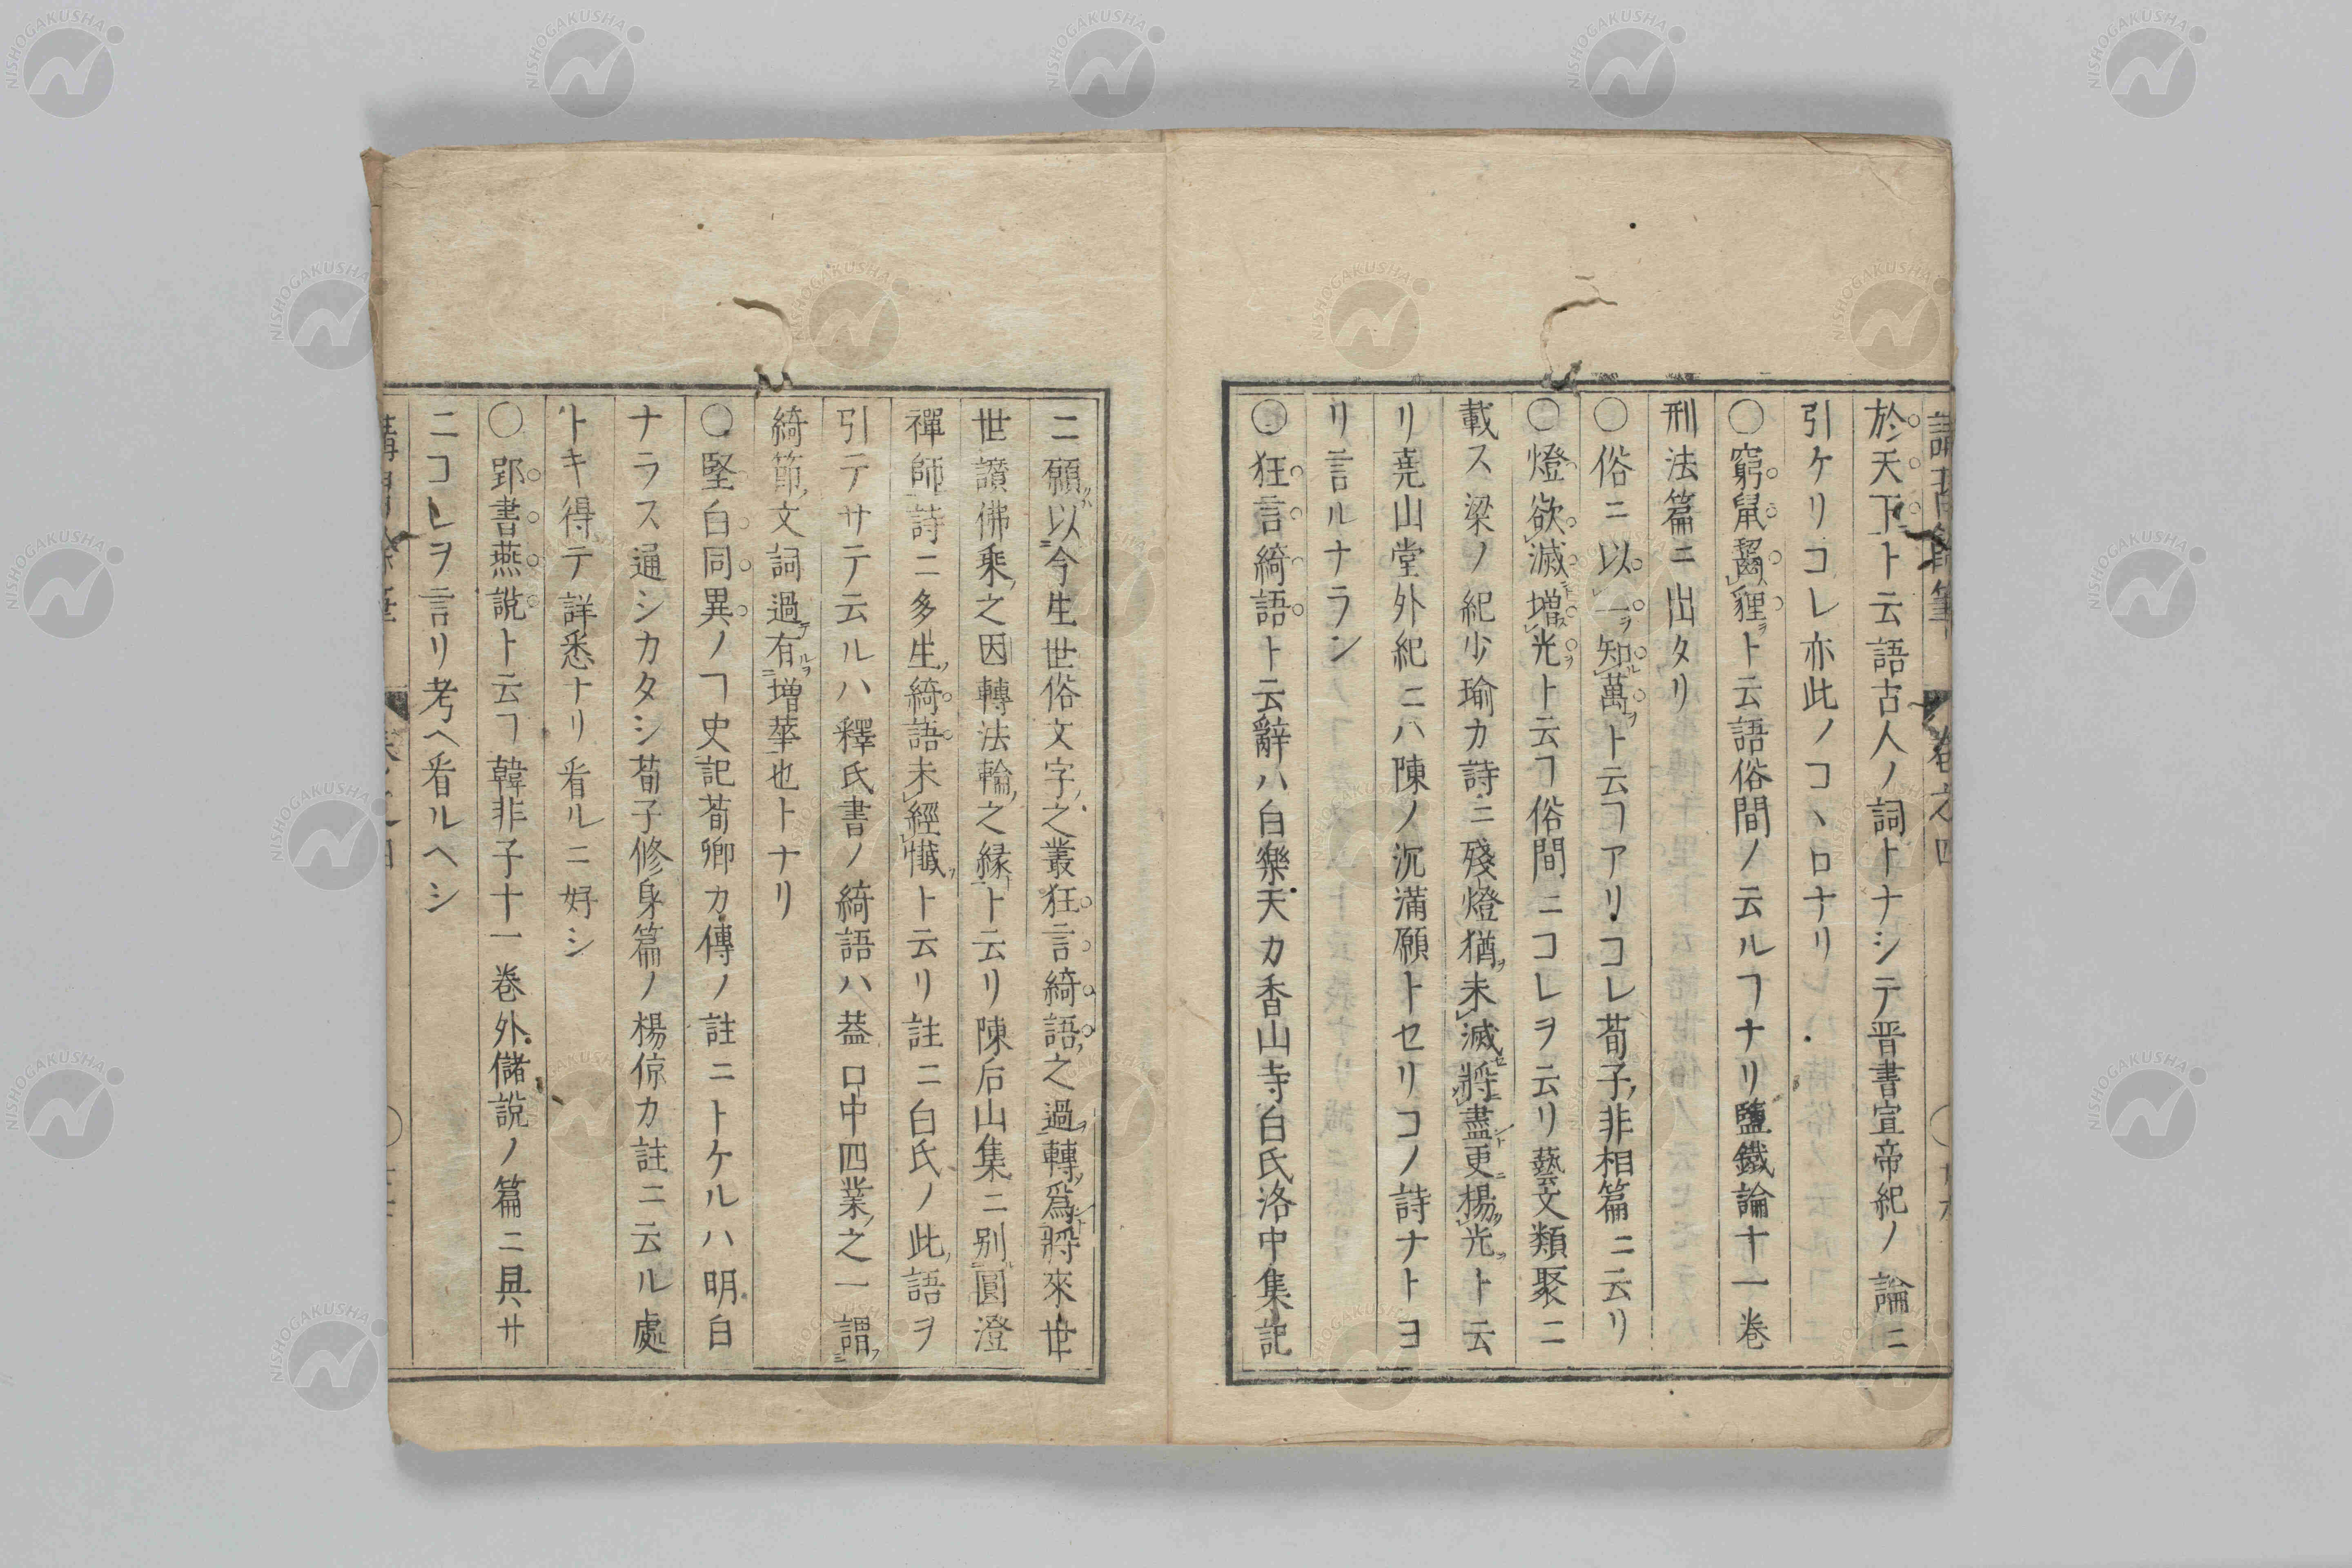 於天下ト云語古人ノ詞トナシテ晋書宣帝紀ノ論ニ
引ケリコレ亦此ノコヽロナリ
〇窮鼠齧貍ヲト云語俗間ノ云ルヿナリ鹽鐵論十一巻
刑法篇ニ出タリ
〇俗ニ以一ヲ知ル萬ヲト云ヿアリコレ荀子非相篇ニ云リ
〇燈欲滅増光ヲト云ヿ俗間ニコレヲ云リ藝文類聚ニ
載ス梁ノ紀少瑜カ詩ニ殘燈猶未滅將盡更揚光ヲト云
リ堯山堂外紀ニハ陳ノ沉滿願トセリコノ詩ナトヨ
リ言ルナラン
〇狂言綺語ト云辭ハ白樂天カ香山寺白氏洛中集記
ニ願以今生世俗文字之叢狂言綺語之過轉爲將來世
世讃佛乘之因轉法輪之縁ト云リ陳后山集ニ別圓澄
禪師詩ニ多生綺語未經懺ト云リ註ニ白氏ノ此語ヲ
引テサテ云ルハ釋氏書ノ綺語ハ葢口中四業之一謂
綺節文詞過有増華也トナリ
〇堅白同異ノヿ史記荀卿カ傳ノ註ニトケルハ明白
ナラス通シカタシ荀子修身篇ノ楊倞カ註ニ云ル處
トキ得テ詳悉ナリ看ルニ好シ
〇郢書燕説ト云ヿ韓非子十一巻外儲説ノ篇ニ具サ
ニコレヲ言リ考ヘ看ルヘシ
NISHOGAKUSHA